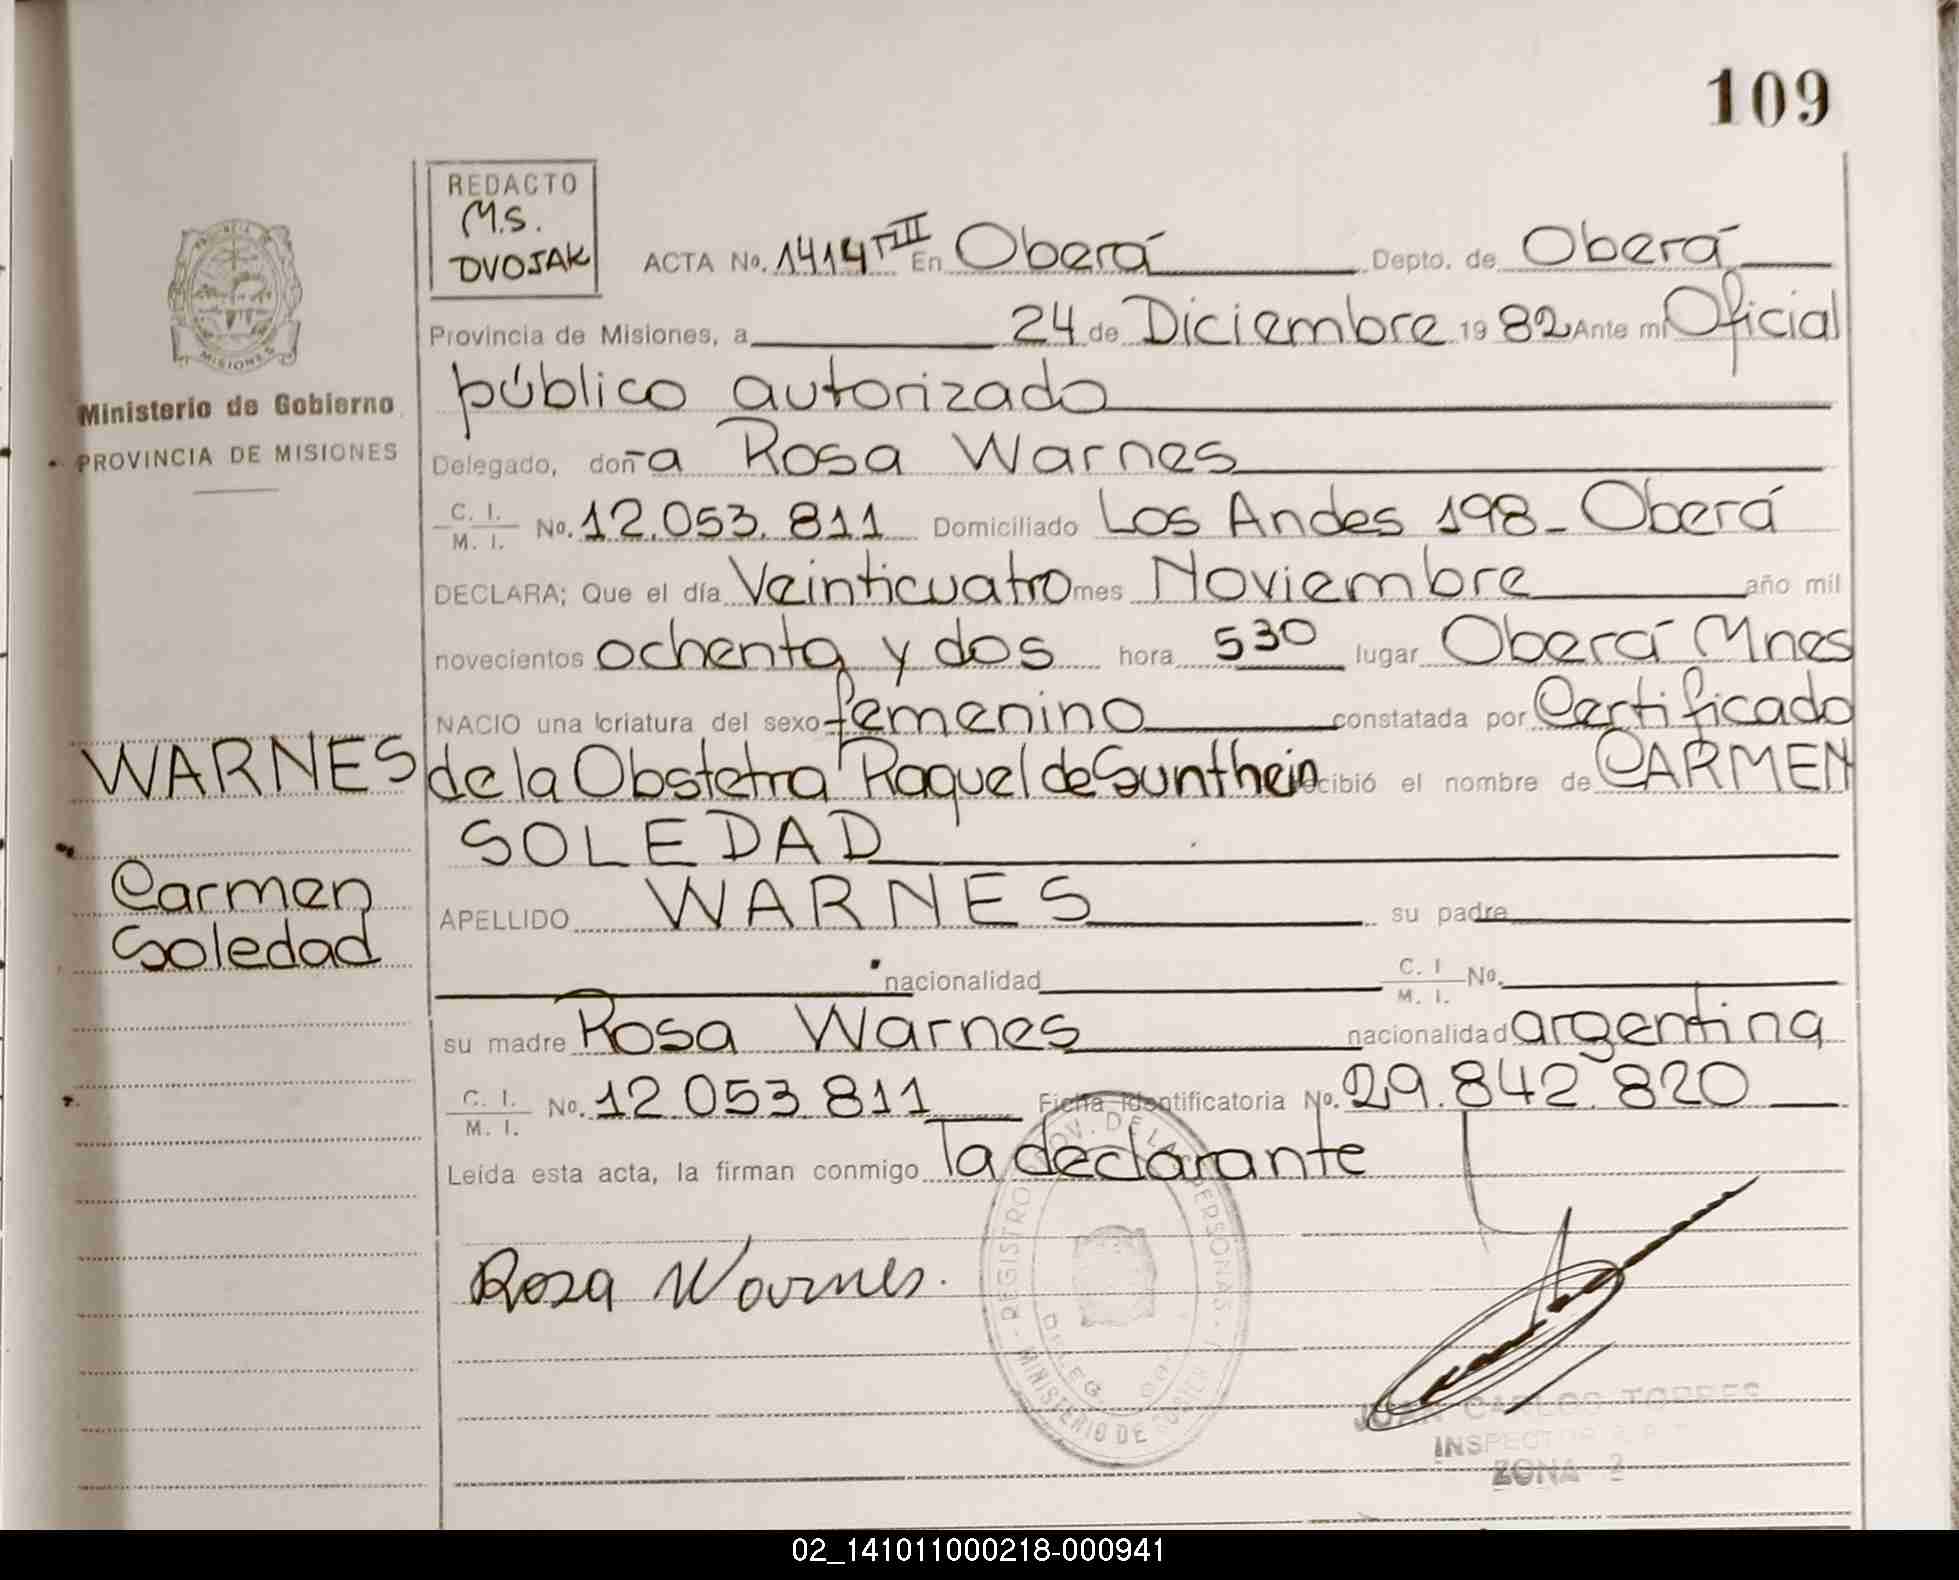 109
REDACTO
M.S.
DVOJAK
ACTA No. 1414 TIII En Oberá Depto. de Oberá
Provincia de Misiones, a 24 de Diciembre 19 82 Ante mi Oficial
público autorizado
Ministerio de Gobierno
PROVINCIA DE MISIONES
Delegado, doña Rosa Warnes
C. I. M. I. No. 12.053.811 Domiciliado Los Andes 198 - Oberá
DECLARA; Que el día Veinticuatro mes Noviembre año mil
novecientos ochenta y dos hora 530 lugar Oberá Mnes
NACIO una criatura del sexo femenino constatada por Certificado
WARNES
de la Obstetra Raquel de Sunthein cibió el nombre de CARMEN
SOLEDAD
Carmen
Soledad
APELLIDO WARNES su padre
nacionalidad C. I M. I. No.
su madre Rosa Warnes nacionalidad argentina
C. I. M. I. No. 12.053.811 Ficha Identificatoria No. 29.842.820
Leída esta acta, la firman conmigo la declarante
Rosa Warnes.
REGISTRO PROV. DE LAS PERSONAS
MINISTERIO DE
DELEG
CARLOS TORRES
INSPECTOR
ZONA 2
02_141011000218-000941